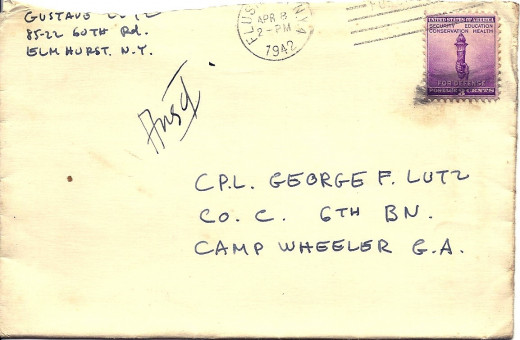 GUSTAVE LUTZ
85-22 60TH Rd.
ELMHURST. N.Y.
APR 8
2-PM
1942
UNITED STATES OF AMERICA
SECURITY EDUCATION
CONSERVATION HEALTH
FOR DEFENSE
POSTAGE 3 CENTS
Ans'd
CPL. GEORGE F. LUTZ
CO. C. 6TH BN.
CAMP WHEELER G.A.